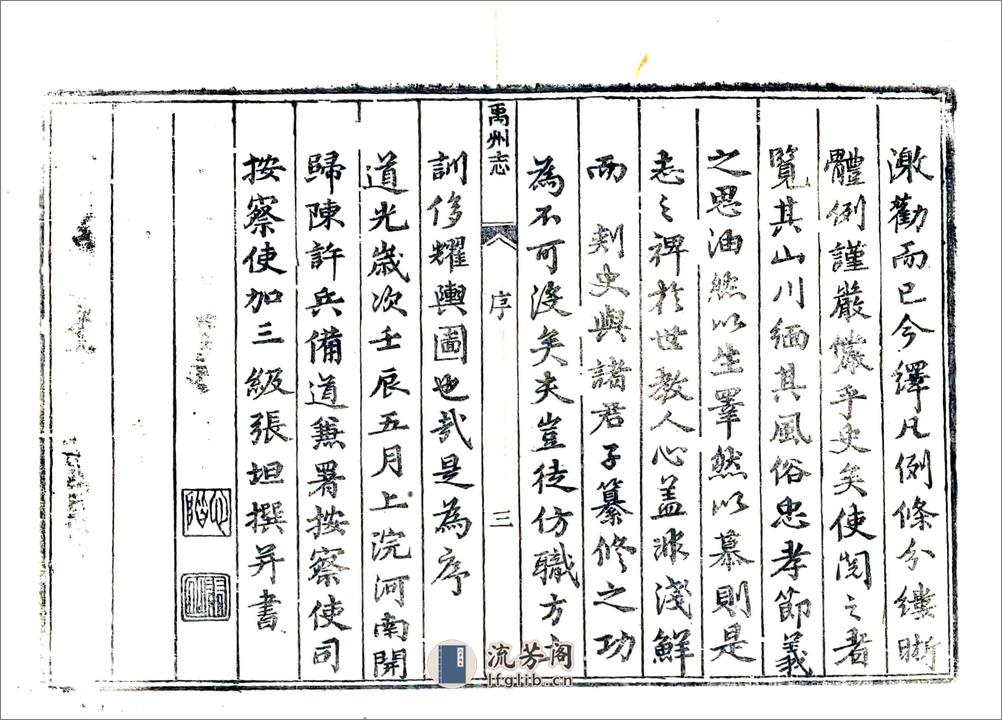 激勸而已今繹凡例條分縷晰
體例謹嚴儼乎史矣使閱之者
覽其山川緬其風俗忠孝節義
之思油然以生睪然以慕則是
志之裨於世教人心蓋非淺鮮
而 刺史與諸君子纂修之功
為不可沒矣夫豈徒仿職方之
禹州志 序 三
訓侈耀輿圖也哉是為序
道光歲次壬辰五月上浣河南開
歸陳許兵備道兼署按察使司
按察使加三級張坦撰并書
流芳阁
lfglib.cn